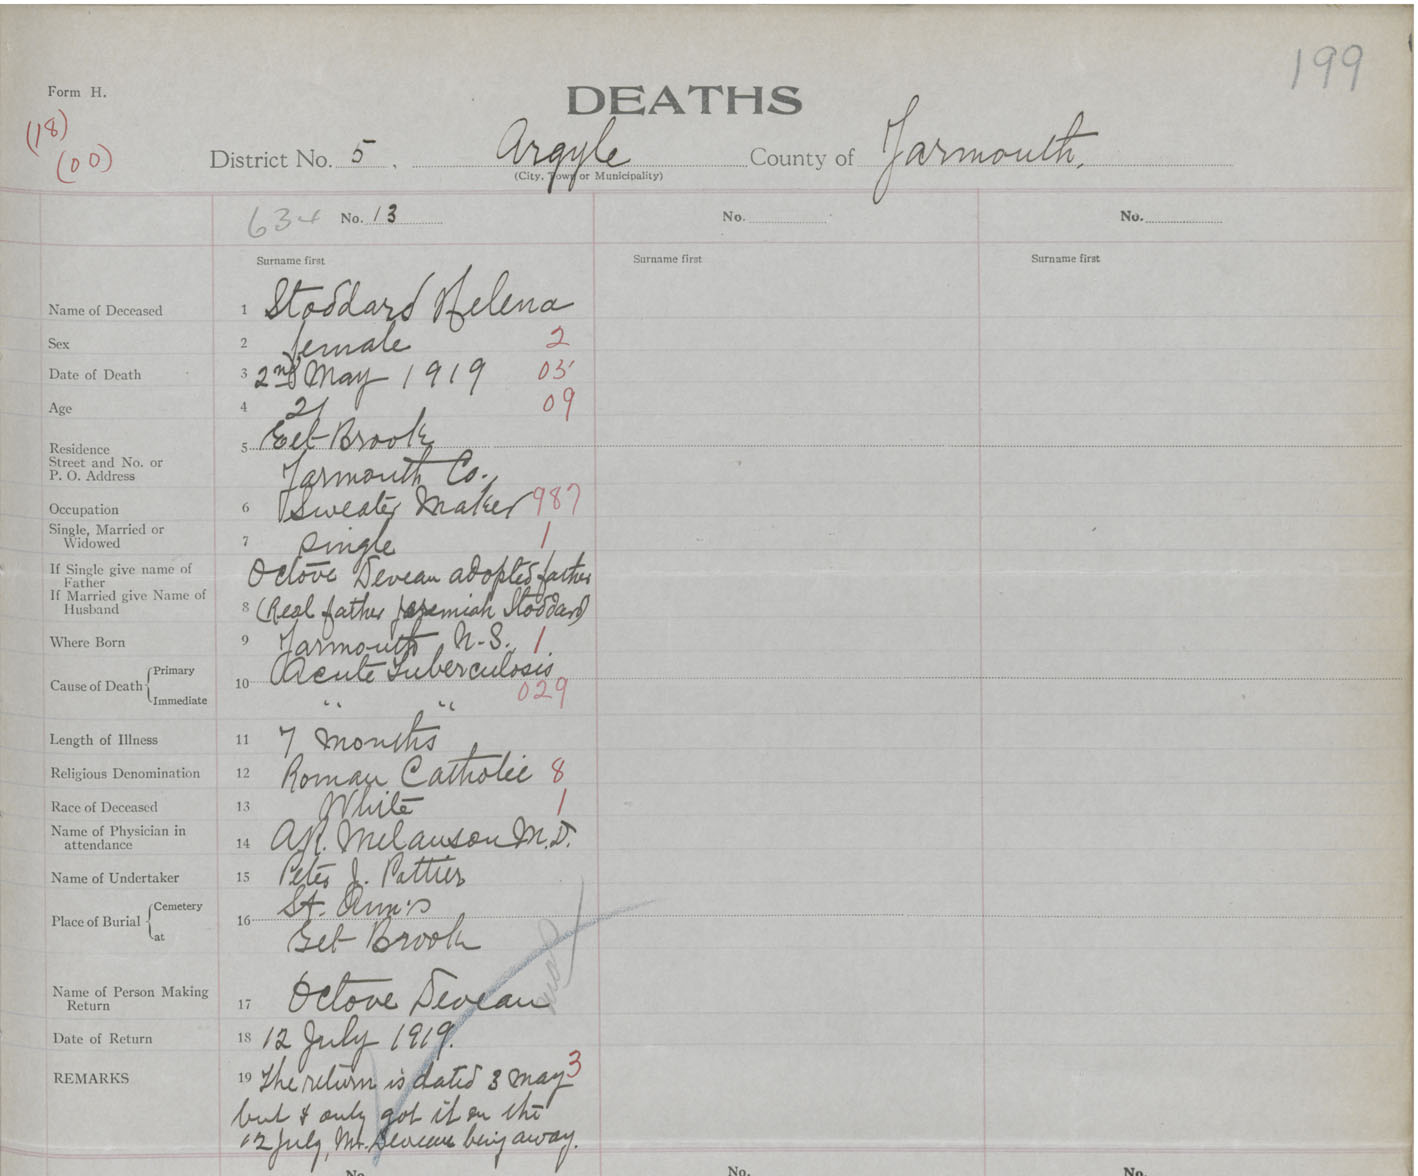 199
Form H.
DEATHS
(18)
(00)
District No. 5, Argyle County of Yarmouth.
(City, Town or Municipality)
634 No. 13 No. No.
Surname first Surname first Surname first
Name of Deceased 1 Stoddard Helena
Sex 2 female 2
Date of Death 3 2nd May 1919 05
Age 4 21 09
Residence
Street and No. or
P. O. Address
5 Eel Brook
Yarmouth Co.
Occupation 6 Sweater Maker 987
Single, Married or
Widowed 7 single 1
If Single give name of
Father
If Married give Name of
Husband
Octove Deveau adopted father
8 (Real father Jeremiah Stoddard)
Where Born 9 Yarmouth N.S. 1
Cause of Death Primary
Immediate
10 Acute Tuberculosis
029
" "
Length of Illness 11 7 months
Religious Denomination 12 Roman Catholic 8
Race of Deceased 13 White 1
Name of Physician in
attendance 14 A.R. Melanson M.D.
Name of Undertaker 15 Peter J. Pottier
Place of Burial Cemetery
at
16 St. Ann's
Eel Brook
Name of Person Making
Return 17 Octove Deveau
Date of Return 18 12 July 1919.
REMARKS 19 The return is dated 3 May 3
but I only got it on the
12 July, Mr. Deveau being away.
No. No. No.